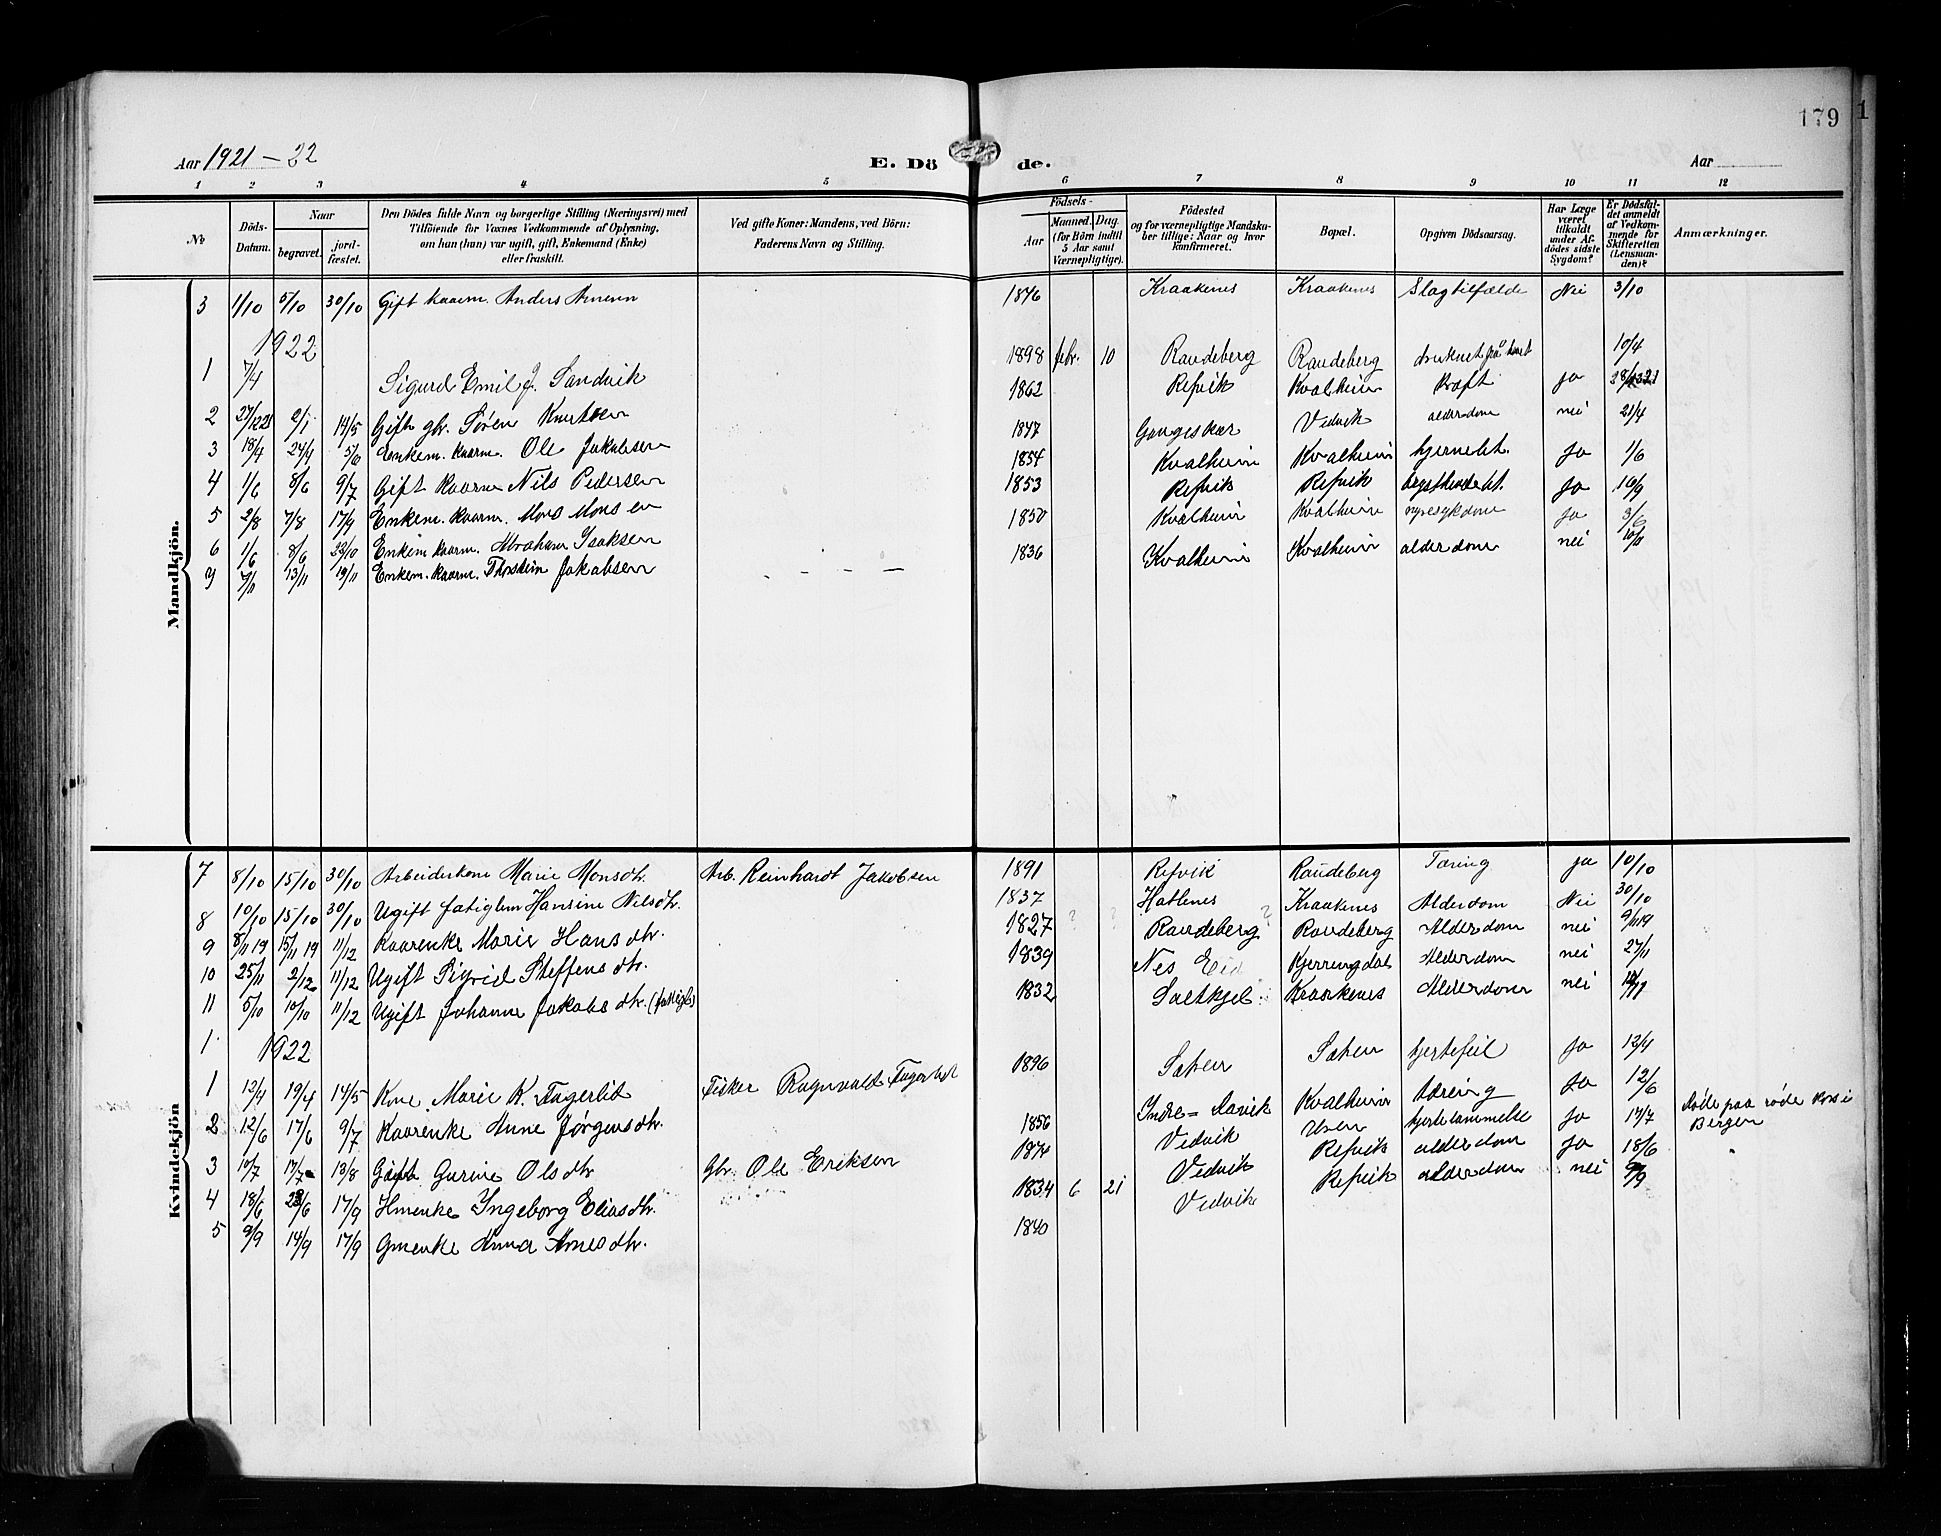 179
Aar 1921 - 22
E. Döde.
Aar
1 2 3 4 5 6 7 8 9 10 11 12
No
Döds-Datum.
Naar
begravet.
jord-fæstet.
Den Dödes fulde Navn og borgerlige Stilling (Næringsvei) med
Tilföiende for Voxnes Vedkommende af Oplysning,
om han (hun) var ugift, gift, Enkemand (Enke)
eller fraskilt.
Ved gifte Koner: Mandens, ved Börn:
Faderens Navn og Stilling.
Födsels-
Aar
Maaned. Dag.
(for Börn indtil
5 Aar samt
Værnepligtige).
Födested
og for værnepligtige Mandska-
ber tillige: Naar og hvor
konfirmeret.
Bopæl.
Opgiven Dödsaarsag.
Har Læge
været
tilkaldt
under Af-
dödes sidste
Sygdom?
Er Dödsfal-
det anmeldt
af Vedkom-
mende for
Skifteretten
(Lensman-
den)?
Anmærkninger.
Mandkjön.
3 1/10 5/10 30/10 Gift kaarm. Anders 1846 Kraakenes Kraakenes Slagtilfælde Nei 3/10
1922
1 7/4 Sigurd Emil J. Sandvik 1898 febr. 10 Raudeberg Raudeberg druknet paa havet 10/4
2 27/12 21 2/1 14/5 Gift gbr. Søren Knutsen 1862 Refvik Kvalheim Kræft ja
3 18/4 24/4 5/6 Enkem. kaarm. Ole Jakobsen 1847 Gangeskar Vedvik alderdom nei 21/4
4 1/6 8/6 9/7 Gift kaarm Nils Pedersen 1854 Kvalheim Kvalheim hjernebet. Ja 1/6
5 2/8 7/8 17/9 Enkem. kaarm. Mons Monsen 1853 Refvik Refvik Ja 16/9
6 1/6 8/6 22/10 Enkem kaarm. Abraham Isaksen 1850 Kvalheim Kvalheim nyresykdom Ja 3/6
7 7/11 13/11 19/11 Enkem. kaarm. Thorstein Jakobsen - - - - 1836 Kvalheim Kvalheim alderdom nei 10/11
Kvindekjön
7 8/10 15/10 30/10 Arbeiderkone Marie Monsdtr. Arb. Reinhardt Jakobsen 1891 Refvik Raudeberg Tæring ja 10/10
8 10/10 15/10 30/10 Ugift fatiglem Hansine Nilsdtr. 1837 Hatlenes Kraakenes Alderdom Nei 30/10
9 8/11 19 15/11 19 11/12 Kaarenke Marie Hansdtr. 1827 ? ? Raudeberg ? Raudeberg Alderdom nei 9/11 19
10 25/11 2/12 11/12 Ugift Sigrid Steffensdtr. 1839 Nes Eid Kjerringdal Alderdom nei 27/11
11 5/10 10/10 11/12 Ugift Johanne Jakobsdtr. (fattigl) 1832 Kraakenes Alderdom nei
1. 1922
1 12/4 19/4 14/5 Kone Marie K. Fagerlid Fisker Ragnvald Fagerlid 1896 Sætren Sætren hjertefeil Ja 12/4
2 12/6 17/6 9/7 Kaarenke Anne Jørgensdtr. 1856 Indre=Davik Kvalheim tæring Ja 12/6
3 10/7 17/7 13/8 Gift Gurine Olsdtr Gbr. Ole Eriksen 1874 Vedvik hjertelammelse Ja 17/7 Døde paa røde Kors i Bergen
4 18/6 23/6 17/9 Hmenke Ingeborg Eliasdtr. 1834 6 21 Vedvik Refvik alderdom Ja 18/6
5 9/9 14/9 17/9 Gmenke Anna Arnesdtr. 1840 Vedvik Refvik alderdom nei 9/9